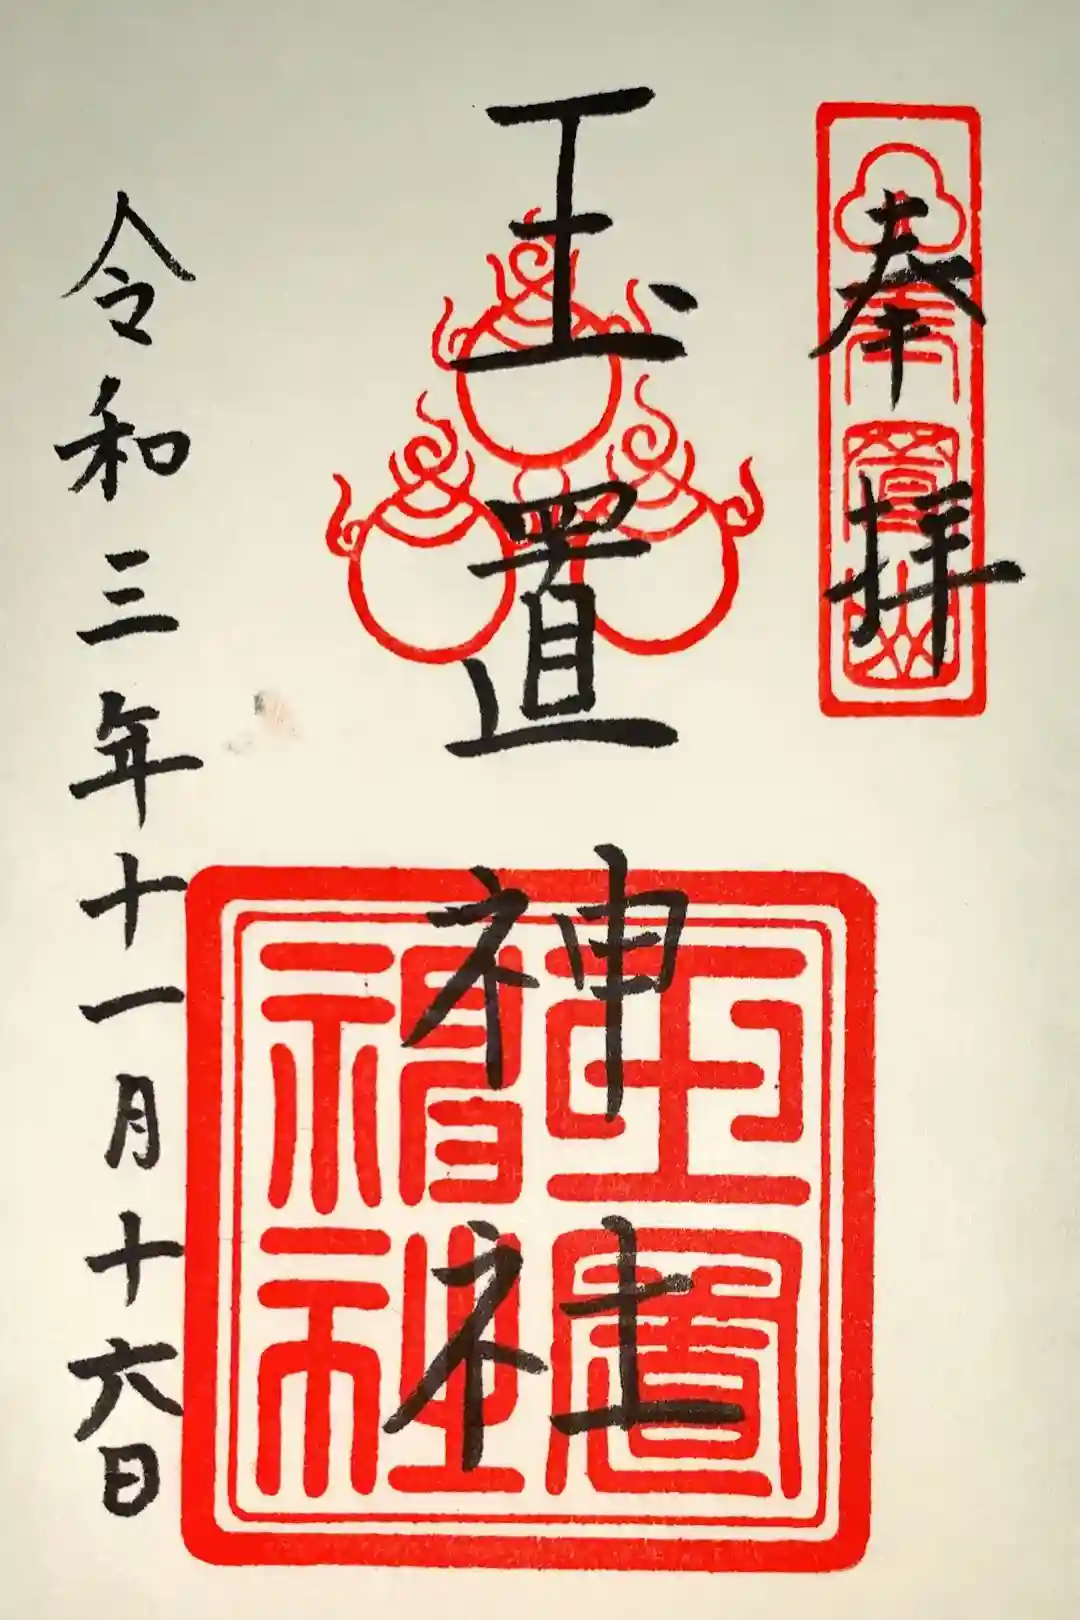 奉拝
玉置神社
令和三年十一月十六日
玉置
神社